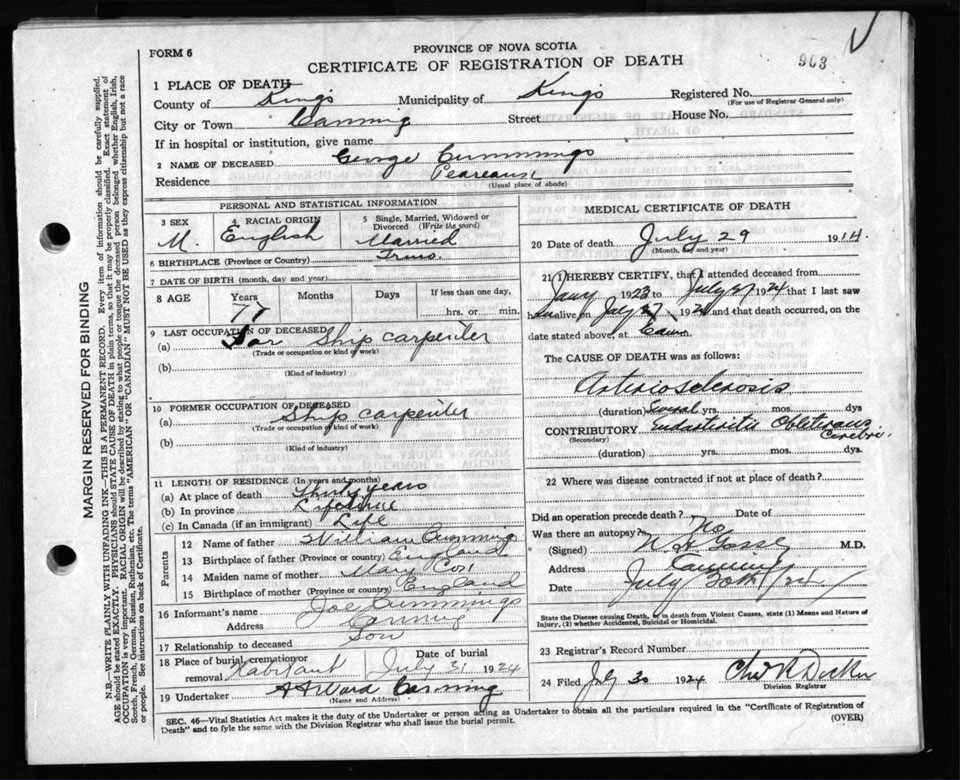 FORM 6
PROVINCE OF NOVA SCOTIA
CERTIFICATE OF REGISTRATION OF DEATH
903
1 PLACE OF DEATH
County of Kings Municipality of Kings Registered No.
(For use of Registrar General only)
City or Town Canning Street House No.
If in hospital or institution, give name
2 NAME OF DECEASED George Cummings
Residence
(Usual place of abode)
PERSONAL AND STATISTICAL INFORMATION
3 SEX M.
4 RACIAL ORIGIN English
5 Single, Married, Widowed or Divorced (Write the word) Married
6 BIRTHPLACE (Province or Country)
7 DATE OF BIRTH (month, day and year)
8 AGE Years Months Days If less than one day,
77 hrs. or min.
9 LAST OCCUPATION OF DECEASED
(a) Ship carpenter
(Trade or occupation or kind of work)
(b)
(Kind of industry)
10 FORMER OCCUPATION OF DECEASED
(a) Ship carpenter
(Trade or occupation or kind of work)
(b)
(Kind of industry)
11 LENGTH OF RESIDENCE (In years and months)
(a) At place of death years
(b) In province Lifetime
(c) In Canada (if an immigrant) Life
Parents
12 Name of father William Cummings
13 Birthplace of father (Province or country) England
14 Maiden name of mother Mary
15 Birthplace of mother (Province or country) England
16 Informant's name Joe Cummings
Address Canning
17 Relationship to deceased Son
18 Place of burial, cremation or removal Habitant
Date of burial July 31 1924
19 Undertaker A A Ward Canning
(Name and Address)
MEDICAL CERTIFICATE OF DEATH
20 Date of death July 29 1914.
(Month, day and year)
21 I HEREBY CERTIFY, that I attended deceased from
Jany 1923 to July 27 1924 that I last saw
him alive on July 27 1924 and that death occurred, on
date stated above, at
The CAUSE OF DEATH was as follows:
Arteriosclerosis
(duration) yrs. mos. dys
CONTRIBUTORY Endarteritis Obliterans
(Secondary) Cerebri.
(duration) yrs. mos. dys.
22 Where was disease contracted if not at place of death?
Did an operation precede death? Date of
Was there an autopsy? No
(Signed) M.D.
Address Canning
Date July 30th / 24
State the Disease causing Death, or in death from Violent Causes, state (1) Means and Nature of Injury, (2) whether Accidental, Suicidal or Homicidal.
23 Registrar's Record Number
24 Filed July 30 1924
Division Registrar
SEC. 46—Vital Statistics Act makes it the duty of the Undertaker or person acting as Undertaker to obtain all the particulars required in the "Certificate of Registration of
Death" and to fyle the same with the Division Registrar who shall issue the burial permit.
(OVER)
MARGIN RESERVED FOR BINDING
N.B.—WRITE PLAINLY WITH UNFADING INK—THIS IS A PERMANENT RECORD. Every item of information should be carefully supplied.
AGE should be stated EXACTLY. PHYSICIANS should STATE CAUSE OF DEATH in plain terms, so that it may be properly classified. Exact statement of
OCCUPATION is very important. RACIAL ORIGIN will be described by stating to what people or tongue the deceased person belonged whether English, Irish,
Scotch, French, German, Russian, Ruthenian, etc. The terms "AMERICAN" OR "CANADIAN" MUST NOT BE USED as they express citizenship but not a race
or people. See instructions on back of Certificate.